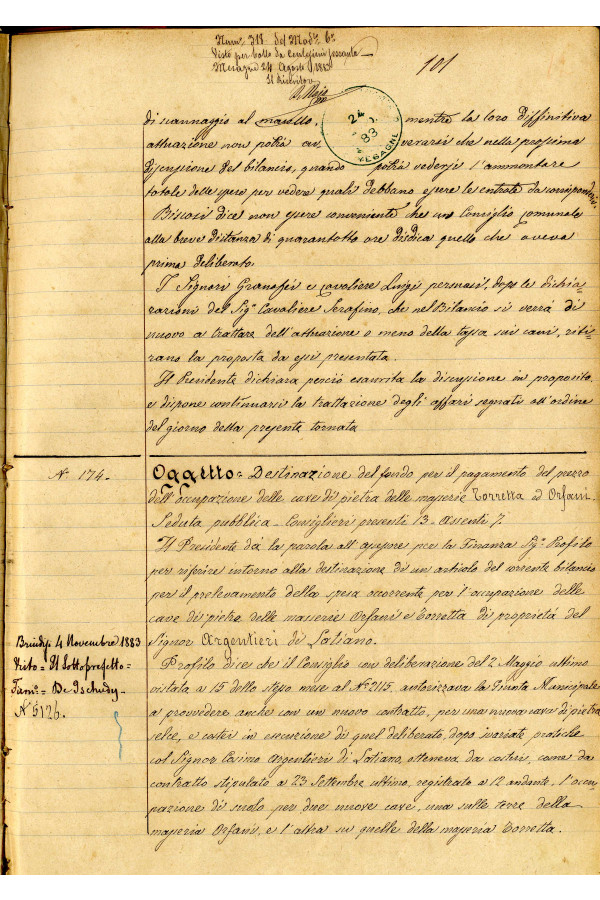 Num.º 311 del Mod.º 6º
Visto per bollo da Centesimi sessanta
Mesagne 24 Agosto 1883
Il Ricevitore
101
24
83
MESAGNE
di scannaggio al macello, mentre la loro diffinitiva
attuazione non potrà av verarsi che nella prossima
discussione del bilancio, quando potrà vedersi l'ammontare
totale delle spese per vedere quali debbano essere le entrate da corrispondervi.
dice non essere conveniente che un Consiglio Comunale
alla breve distanza di quarantotto ore disdica quello che aveva
prima deliberato.
I Signori Granafei e Cavaliere Luigi permasi, dopo le dichia=
razioni del Sig.r Cavaliere Serafino, che nel Bilancio si verrà di
nuovo a trattare dell'attuazione o meno della tassa sui cani, riti=
rano la proposta da essi presentata.
Il Presidente dichiara perciò esaurita la discussione in proposito
e dispone continuarsi la trattazione degli affari segnati all'ordine
del giorno della presente tornata
N. 174.
Oggetto = Destinazione del fondo per il pagamento del prezzo
dell'occupazione delle cave di pietra delle masserie Torretta ed Orfani.
Seduta pubblica - Consiglieri presenti 13 - Assenti 7.
Il Presidente dà la parola all'assessore per la Finanza Sig.r Profilo
per riferire intorno alla destinazione di un articolo del corrente bilancio
per il prelevamento della spesa occorrente per l'occupazione delle
cave di pietra delle masserie Orfani e Torretta di proprietà del
Signor Argentieri di Latiano.
Brindisi 4 Novembre 1883
Visto = Il Sottoprefetto =
Firm.º = De Tschudy
N 5126.
Profilo dice che il Consiglio con deliberazione del 2 Maggio ultimo
vistata a 15 dello stesso mese al Nº 2115, autorizzava la Giunta Municipale
a provvedere anche con un nuovo contratto, per una nuova cava di pietra
selce, e costei in esecuzione di quel deliberato, dopo svariate pratiche
col Signor Cosimo Argentieri di Latiano, otteneva da costui, come da
contratto stipulato a 23 Settembre ultimo, registrato a 12 andante, l'occu=
pazione di suolo per due nuove cave, una sulle terre della
masseria Orfani, e l'altra su quelle della masseria Torretta.